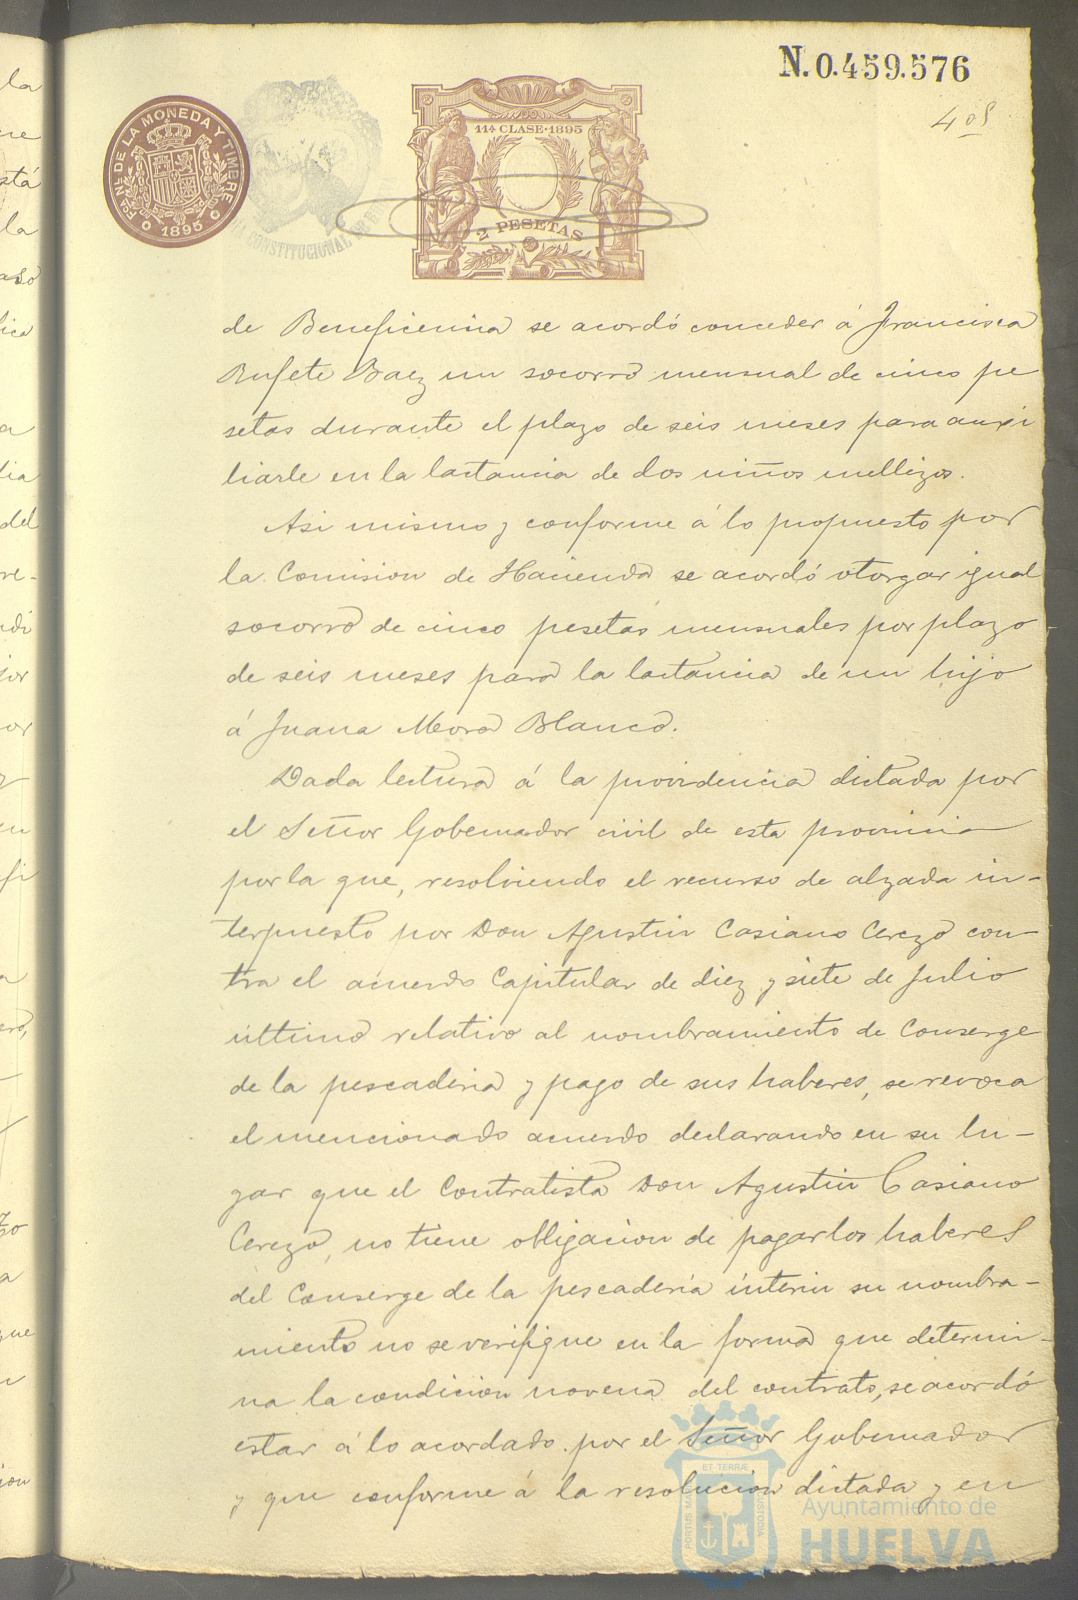 N. 0.459.576
408
FCA. NL. DE LA MONEDA Y TIMBRE
1895
CONSTITUCIONAL
11ª CLASE·1895
2 PESETAS
de Beneficencia se acordó conceder á Francisca
Rufete Baez un socorro mensual de cinco pe
setas durante el plazo de seis meses para auxi
liarle en la lactancia de dos niños mellizos.
Asi mismo y conforme á lo propuesto por
la Comision de Hacienda se acordó otorgar igual
socorro de cinco pesetas mensuales por plazo
de seis meses para la lactancia de un hijo
á Juana Mora Blanco.
Dada lectura á la providencia dictada por
el Señor Gobernador civil de esta provincia
por la que, resolviendo el recurso de alzada in-
terpuesto por Don Agustin Casiano Cerezo con-
tra el acuerdo Capitular de diez y siete de Julio
último relativo al nombramiento de Conserge
de la pescaderia y pago de sus haberes, se revoca
el mencionado acuerdo declarando en su lu-
gar que el Contratista Don Agustin Casiano
Cerezo, no tiene obligacion de pagar los haberes
del Conserge de la pescadería ínterin su nombra-
miento no se verifique en la forma que determi-
na la condicion novena del contrato, se acordó
estar á lo acordado por el Señor Gobernador
y que conforme á la resolucion dictada y en
PORTUS MARIS ET TERRÆ CUSTODIA
Ayuntamiento de
HUELVA